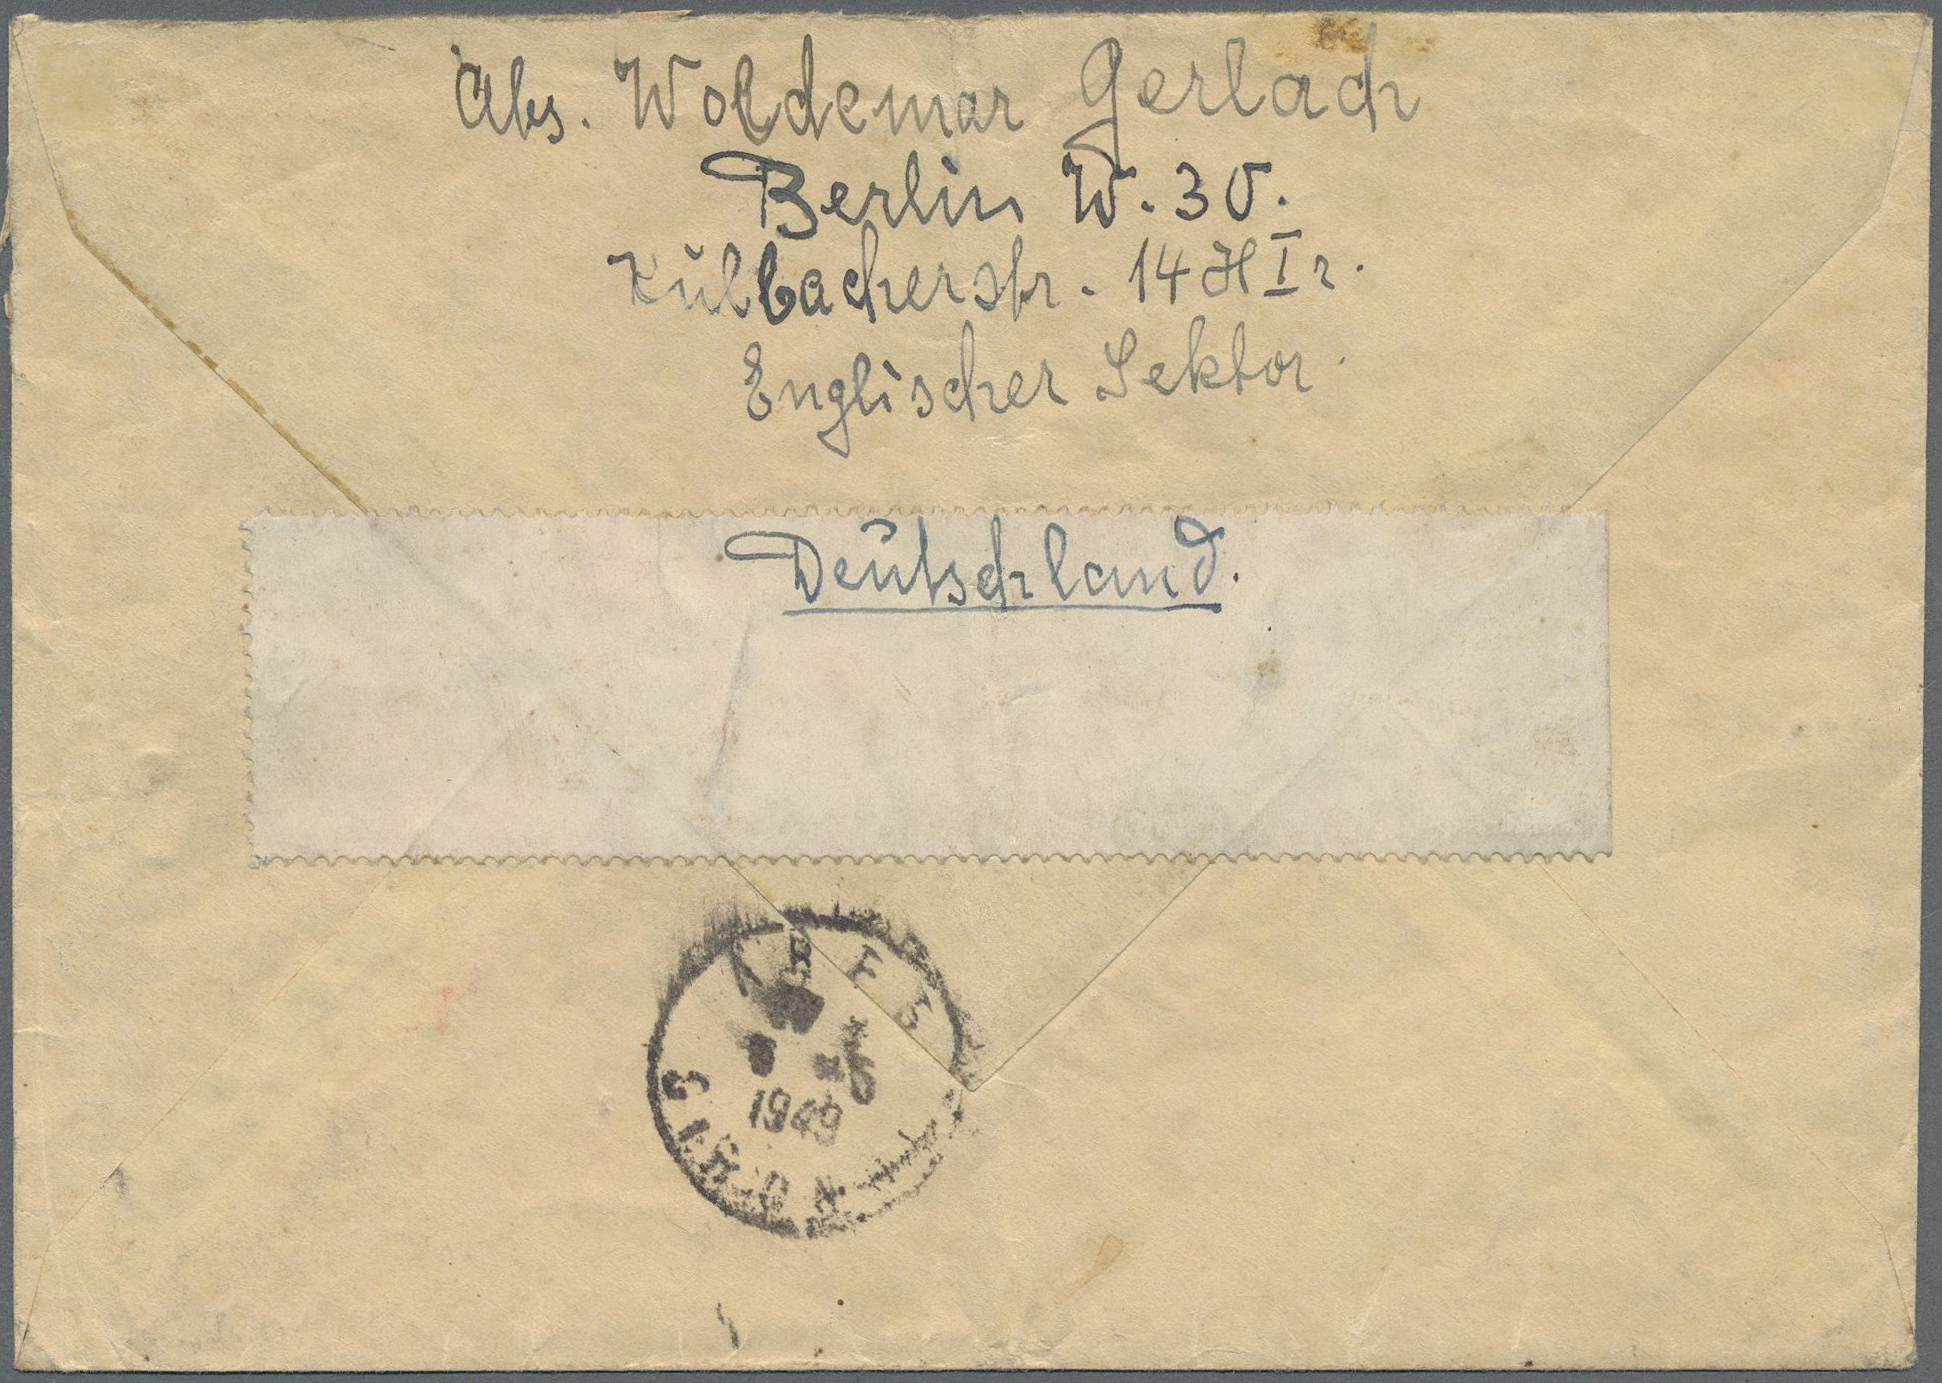 Abs. Woldemar Gerlach
Berlin W. 30.
Külbacherstr. 14 H I r.
Englischer Sektor.
Deutschland.
1949